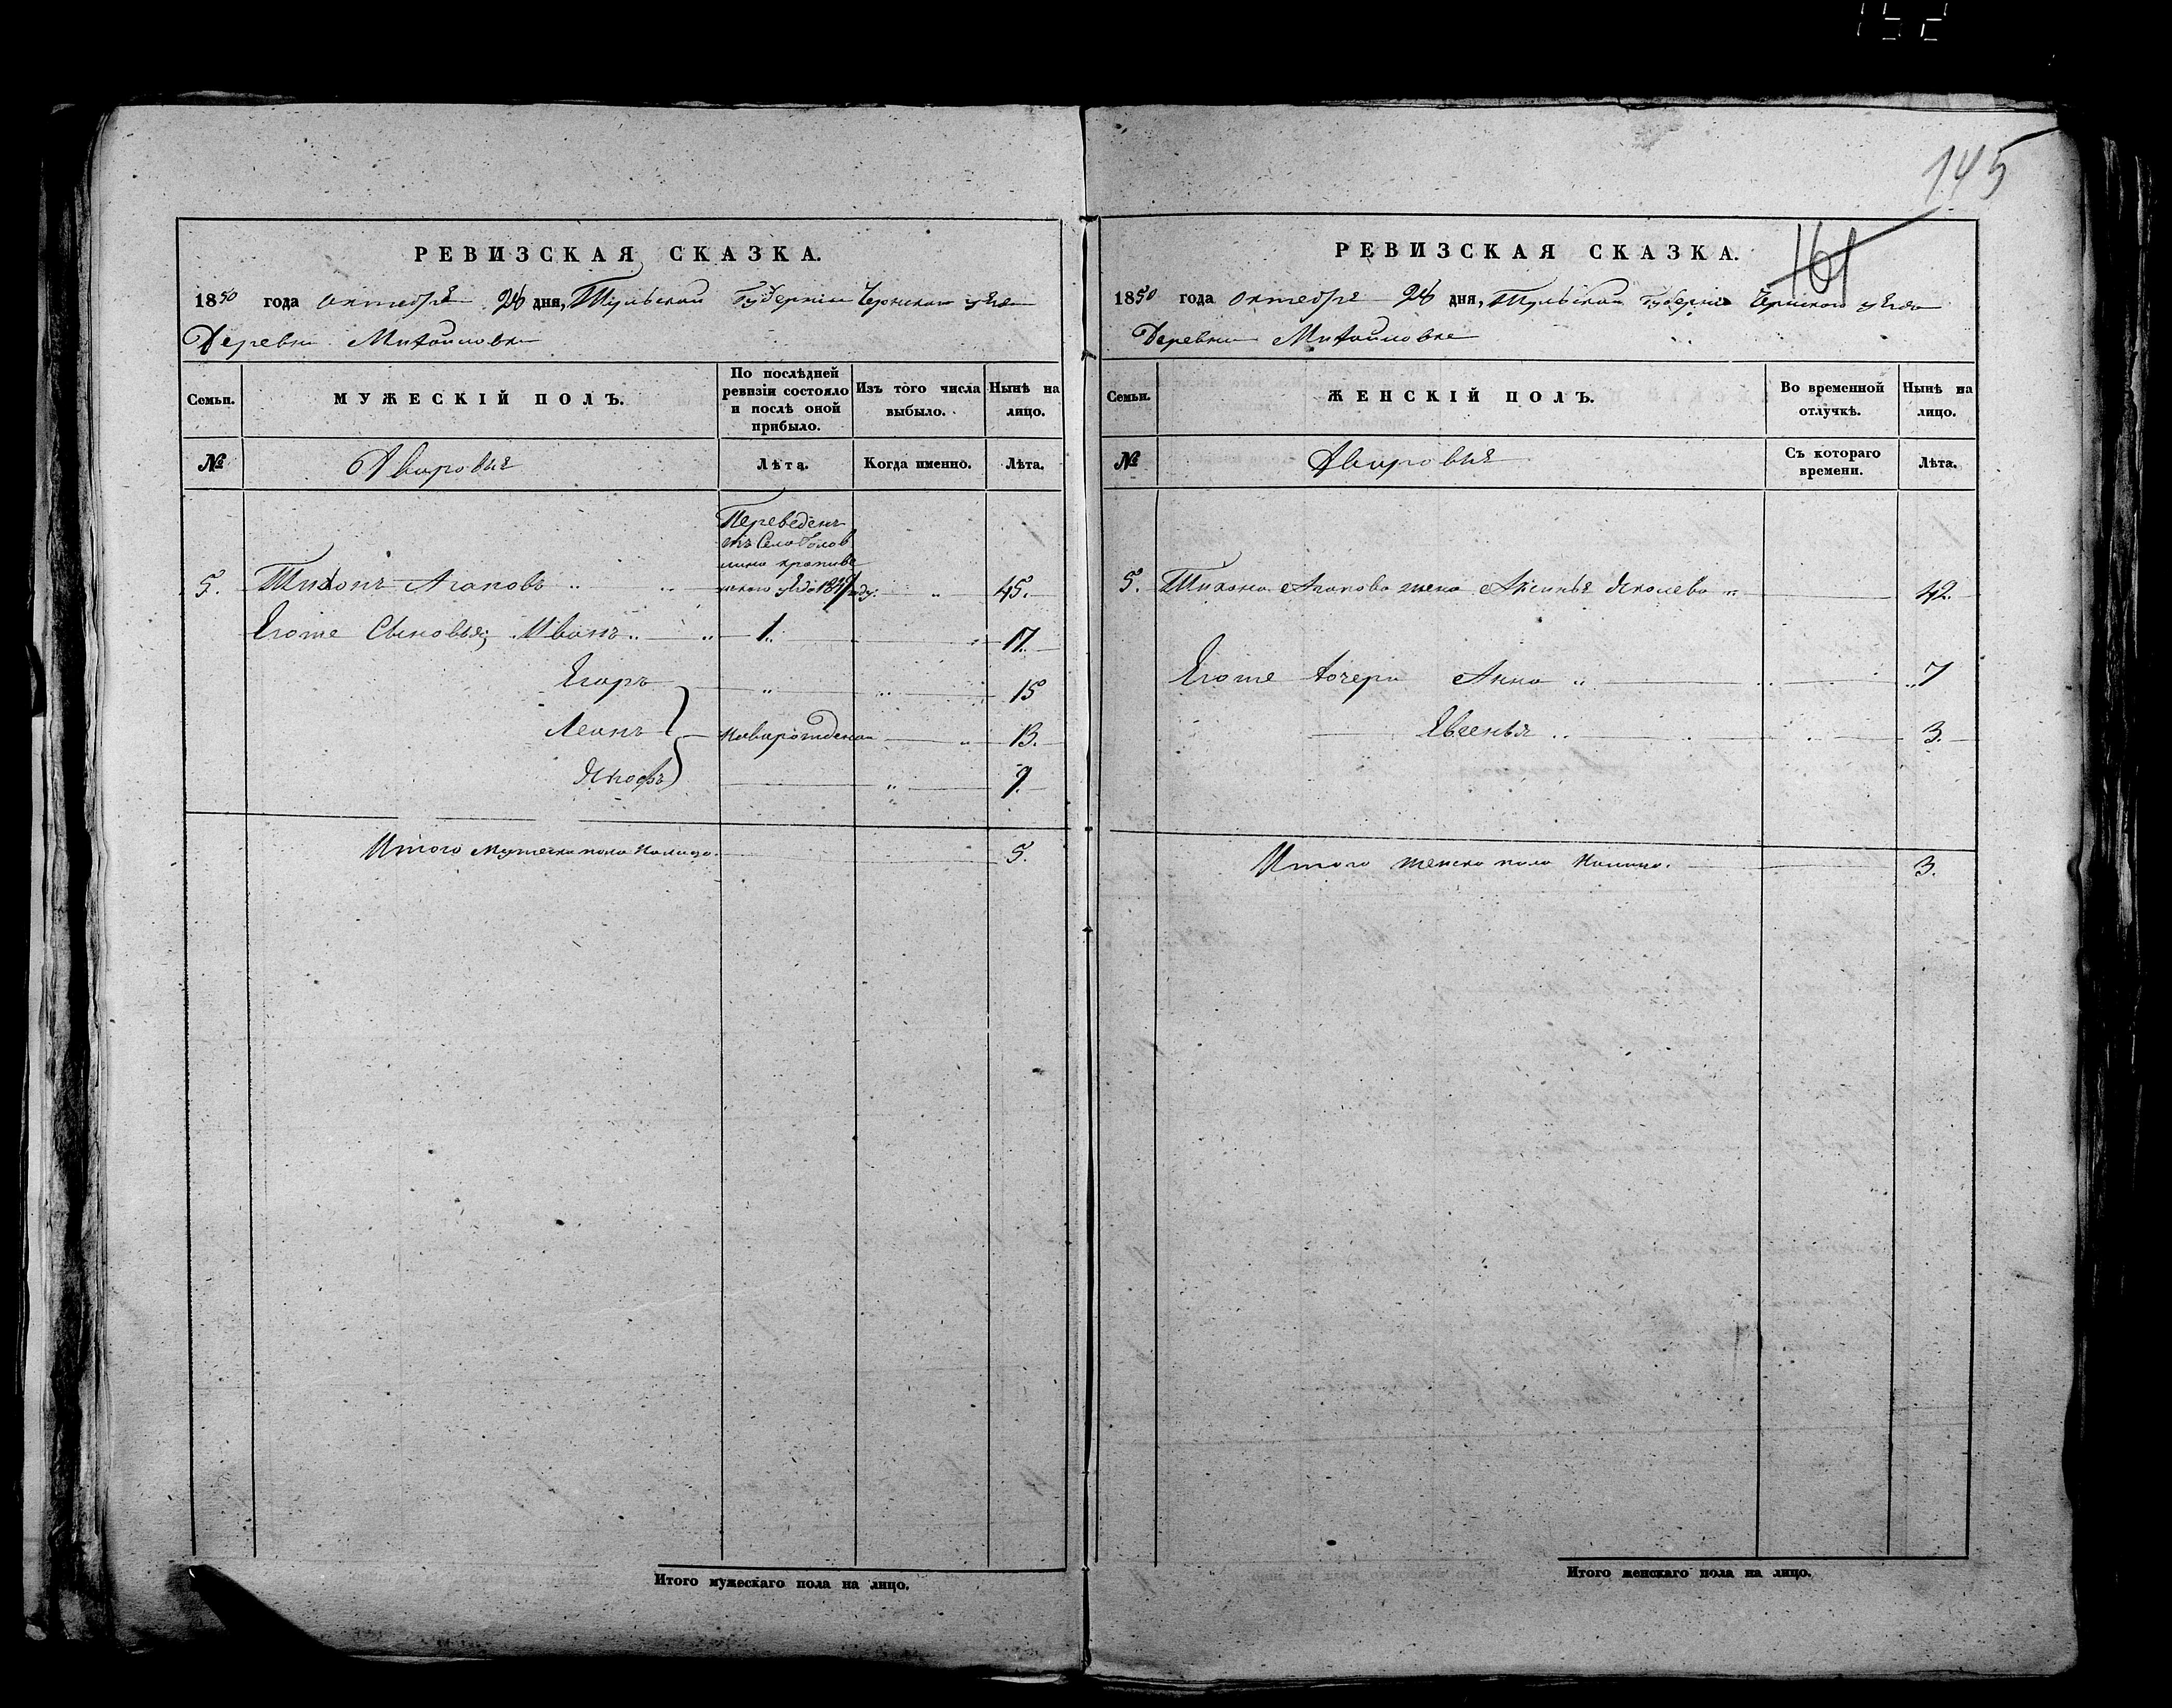 152
145
РЕВИЗСКАЯ СКАЗКА.
1850 года октебрѣ 28 дня, Тульской Губерніи Чернскаго уѣзда
Деревни Михайловки
Семьи.
МУЖЕСКІЙ ПОЛЪ.
По послѣдней ревизіи состояло и послѣ оной прибыло.
Изъ того числа выбыло.
Нынѣ на лицо.
№
Дворовыя
Лѣта.
Когда именно.
Лѣта.
Переведенъ
изъ Села Голов
лина крапиве
нскаго уѣзда 184 году.
5. Тихонъ Агаповъ " " " 45.
Егоже Сыновья; Иванъ " " 1. " 17.
Егоръ " " 15
Леонъ новорожденои " 13.
Якофъ " 9.
Итого Мужеска пола Налицо. 5.
Итого мужескаго пола на лицо.
161
РЕВИЗСКАЯ СКАЗКА.
1850 года октебрѣ 28 дня, Тульской Губерніи Чернскаго уѣзда
Деревни Михайловке
Семьи.
ЖЕНСКІЙ ПОЛЪ.
Во временной отлучкѣ.
Нынѣ на лицо.
№
Дворовыя
Съ котораго времени.
Лѣта.
5. Тихона Агапова жена Аксинья Яколева " 42.
Егоже дочери Анна " " 7
Евгенья " " 3.
Итого женска пола налицо. 3.
Итого женскаго пола на лицо.